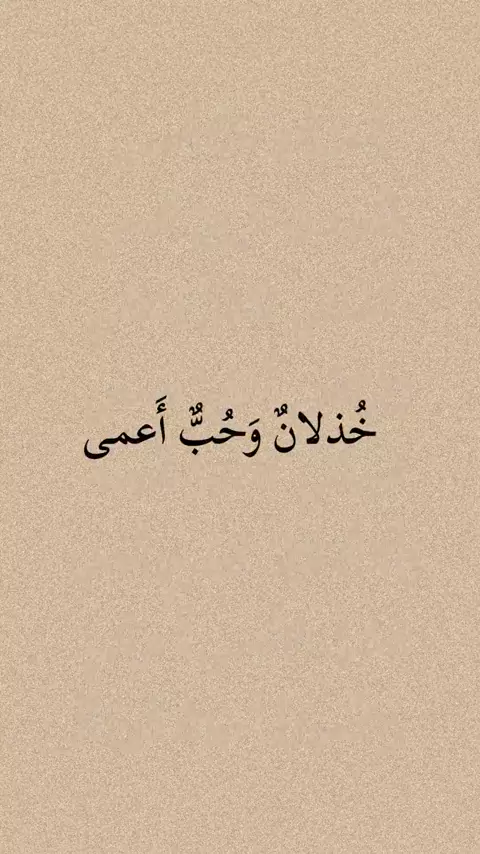 خُذلانٌ وَحُبٌّ أَعمى